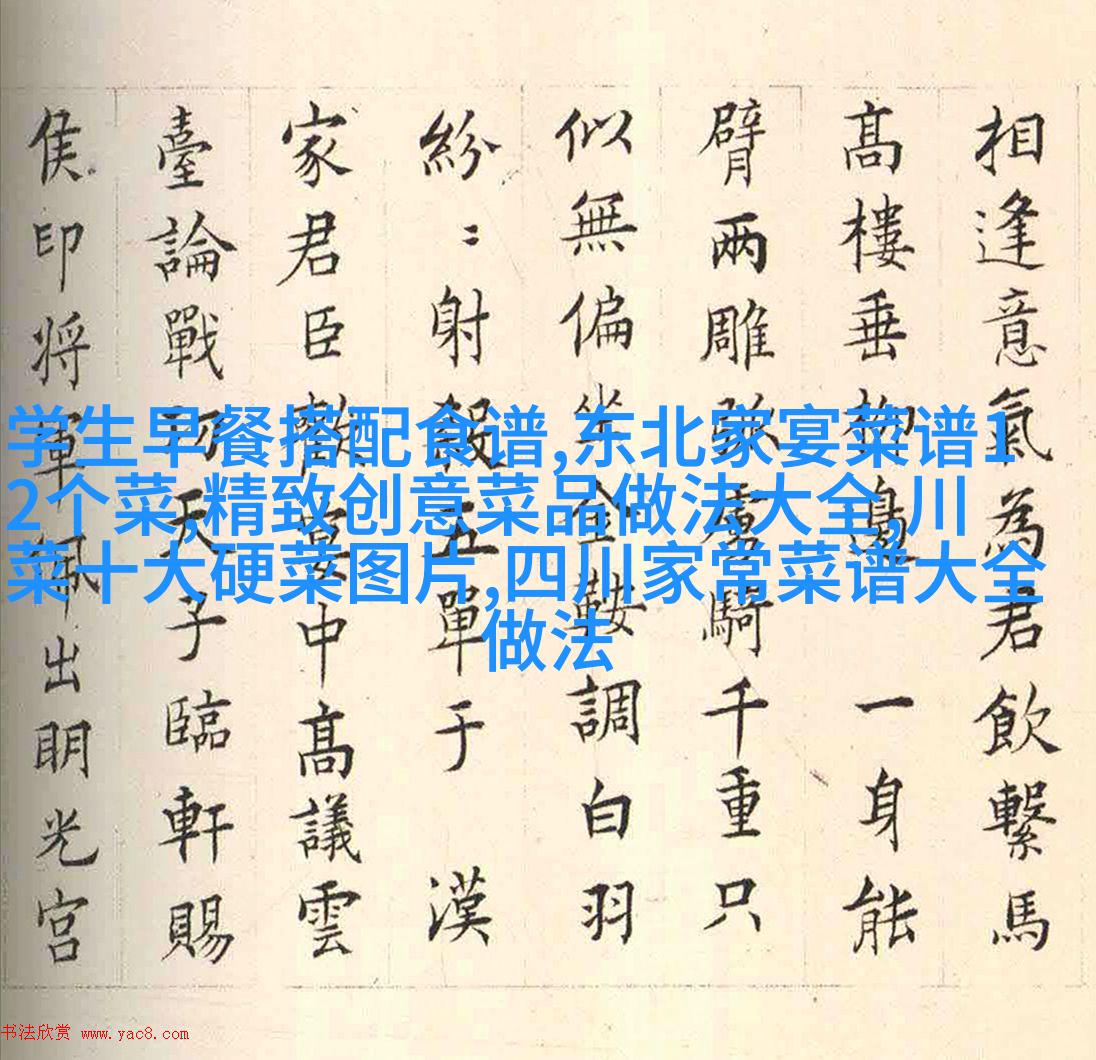 相逢意氣為君飲繫馬
髙樓垂柳邊 一身能
臂兩雕弧虜騎千重只
似無偏坐金鞍調白羽
紛〻射殺五單于 漢
家君臣歡宴中髙議雲
臺論戰功天子臨軒賜
侯印将軍珮出明光宮
学生早餐搭配食谱,东北家宴菜谱1
2个菜,精致创意菜品做法大全,川
菜十大硬菜图片,四川家常菜谱大全
做法
书法欣赏 www.yac8.com